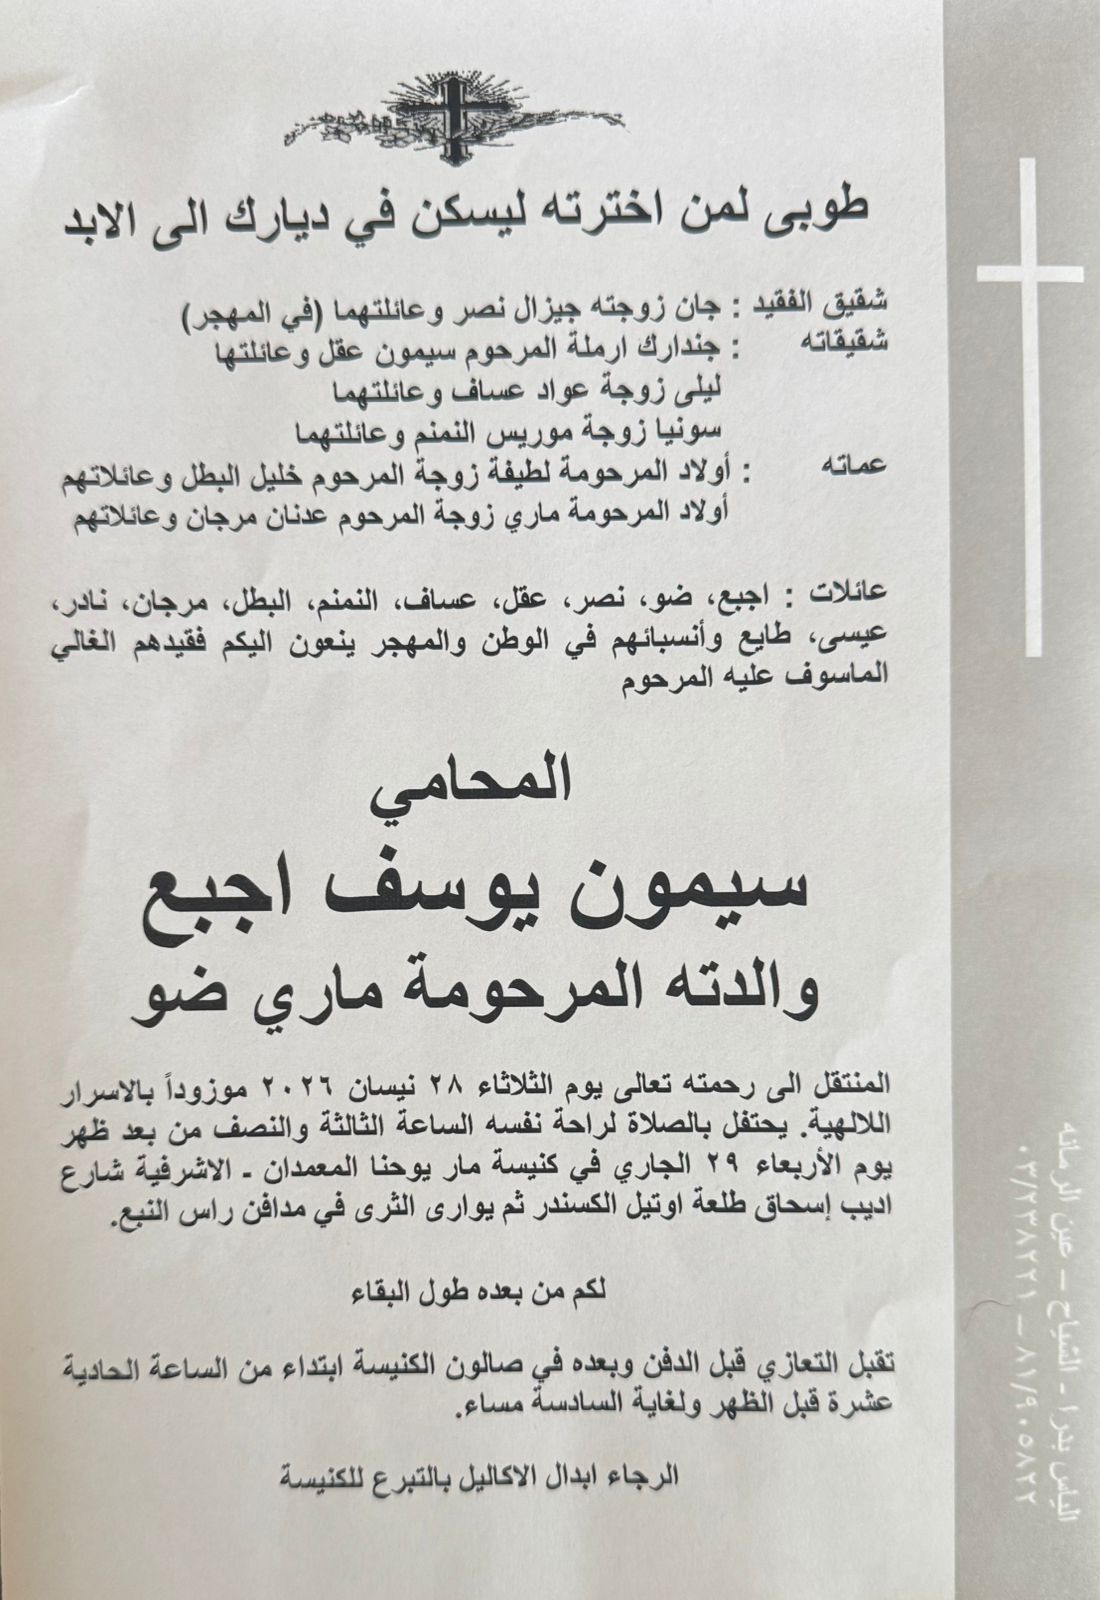 طوبى لمن اخترته ليسكن في ديارك الى الابد
شقيق الفقيد : جان زوجته جيزال نصر وعائلتهما (في المهجر)
شقيقاته : جندارك ارملة المرحوم سيمون عقل وعائلتها
ليلى زوجة عواد عساف وعائلتهما
سونيا زوجة موريس النمنم وعائلتهما
عماته : أولاد المرحومة لطيفة زوجة المرحوم خليل البطل وعائلاتهم
أولاد المرحومة ماري زوجة المرحوم عدنان مرجان وعائلاتهم
عائلات : اجبع، ضو، نصر، عقل، عساف، النمنم، البطل، مرجان، نادر،
عيسى، طايع وأنسبائهم في الوطن والمهجر ينعون اليكم فقيدهم الغالي
الماسوف عليه المرحوم
المحامي
سيمون يوسف اجبع
والدته المرحومة ماري ضو
المنتقل الى رحمته تعالى يوم الثلاثاء ٢٨ نيسان ٢٠٢٦ موزوداً بالاسرار
اللالهية. يحتفل بالصلاة لراحة نفسه الساعة الثالثة والنصف من بعد ظهر
يوم الأربعاء ٢٩ الجاري في كنيسة مار يوحنا المعمدان - الاشرفية شارع
اديب إسحاق طلعة اوتيل الكسندر ثم يوارى الثرى في مدافن راس النبع.
لكم من بعده طول البقاء
تقبل التعازي قبل الدفن وبعده في صالون الكنيسة ابتداء من الساعة الحادية
عشرة قبل الظهر ولغاية السادسة مساء.
الرجاء ابدال الاكاليل بالتبرع للكنيسة
الياس بدرا - الشياح - عين الرمانه
٠٣/٢٣٨٢٢١ - ٨١/٩٠٥٨٢٢